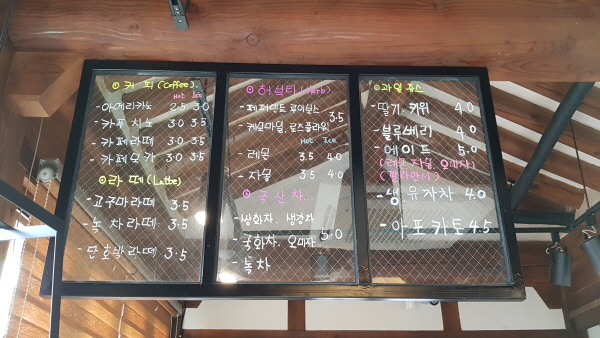 ⊙커 피 (Coffee)
Hot Ice
-아메리카노 2.5 3.0
- 카푸치노 3.0 3.5
- 카페라떼 3.0 3.5
- 카페모카 3.0 3.5
⊙라 떼 (Latte)
-고구마라떼 3.5
- 녹차라떼 3.5
- 단호박라떼 3.5
⊙허브티 (Herb)
- 페퍼민트 루이보스
- 캐모마일, 로즈플라워 3.5
Hot Ice
-레몬 3.5 4.0
- 자몽 3.5 4.0
⊙국산차...
-쌍화차. 생강차
- 국화차. 오미자 5.0
- 녹차
⊙과일쥬스
-딸기 키위 4.0
-블루베리 4.0
-에이드 5.0
(레몬 자몽 오미자)
(깔라만시)
- 생 유자차 4.0
- 아포카토 4.5